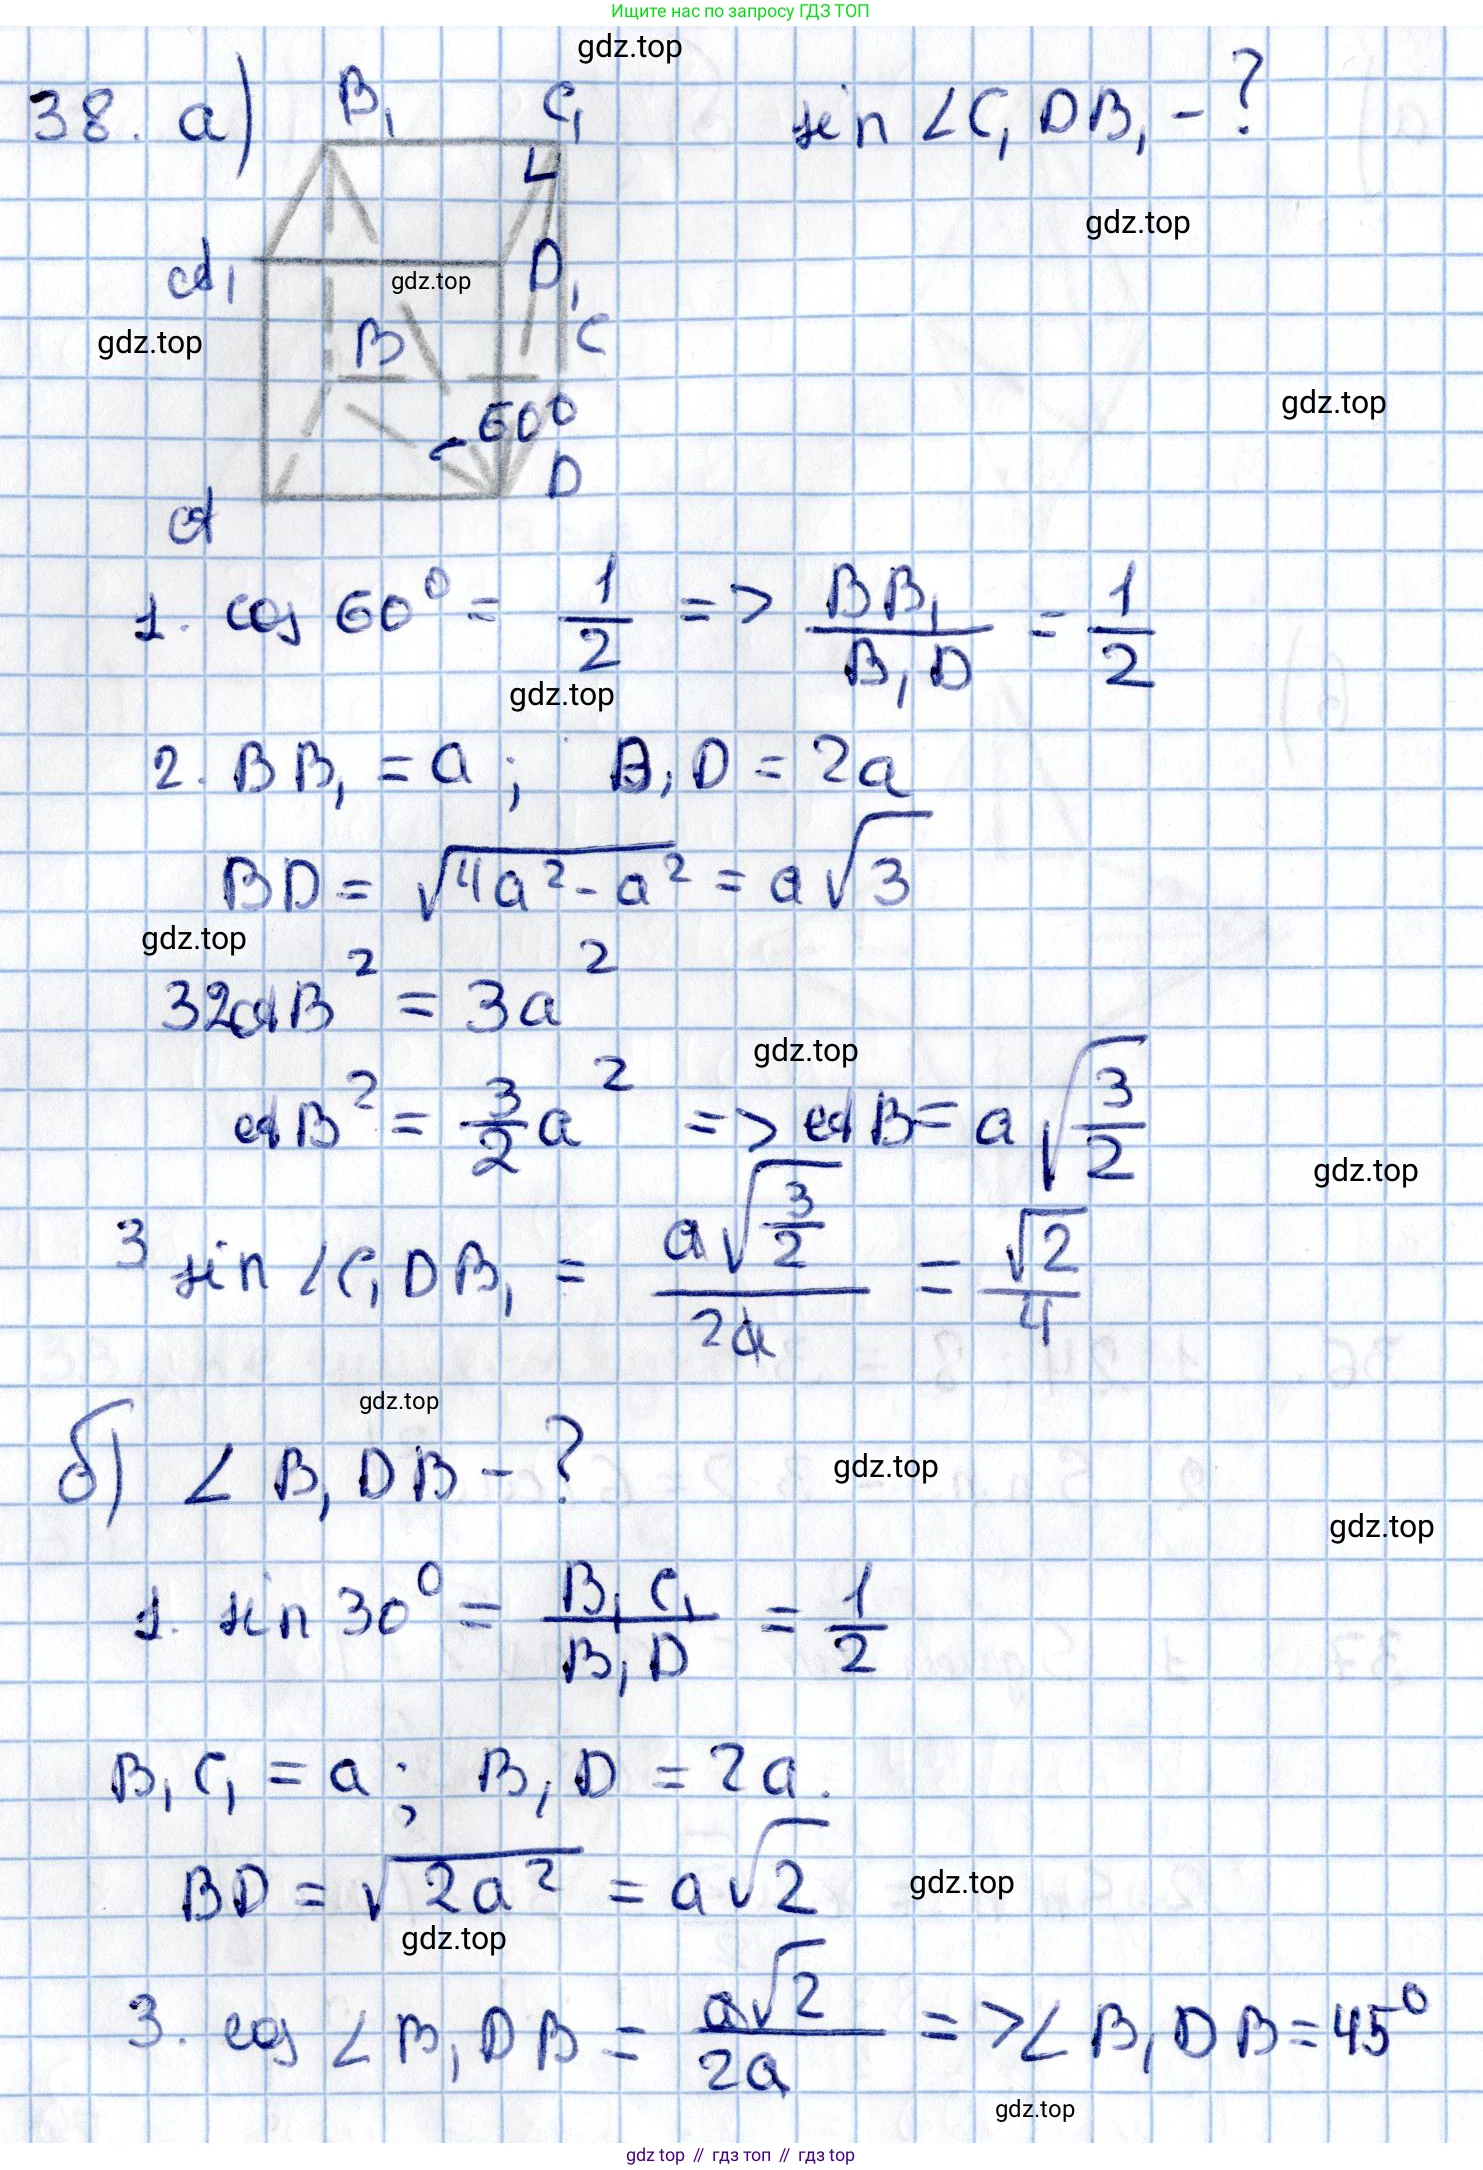 Ищите нас по запросу ГДЗ ТОП
gdz.top
38. а) B₁ C₁ sin ∠C₁DB₁ - ?
gdz.top
A₁ D₁
gdz.top
gdz.top
B C
gdz.top
60⁰
D
A
1. cos 60⁰ = 1/2 => BB₁/B₁D = 1/2
gdz.top
2. BB₁ = a; B₁D = 2a
BD = √(4a² - a²) = a√3
gdz.top
32AB² = 3a²
gdz.top
AB² = 3/2 a² => AB = a√(3/2)
gdz.top
3 sin ∠C₁DB₁ = a√(3/2)/2a = √2/4
gdz.top
б) ∠B₁DB - ?
gdz.top
gdz.top
1. sin 30⁰ = B₁C₁/B₁D = 1/2
B₁C₁ = a; B₁D = 2a.
BD = √(2a²) = a√2
gdz.top
gdz.top
3. cos ∠B₁DB = a√2/2a => ∠B₁DB = 45⁰
gdz.top
gdz top // гдз топ // gdz top